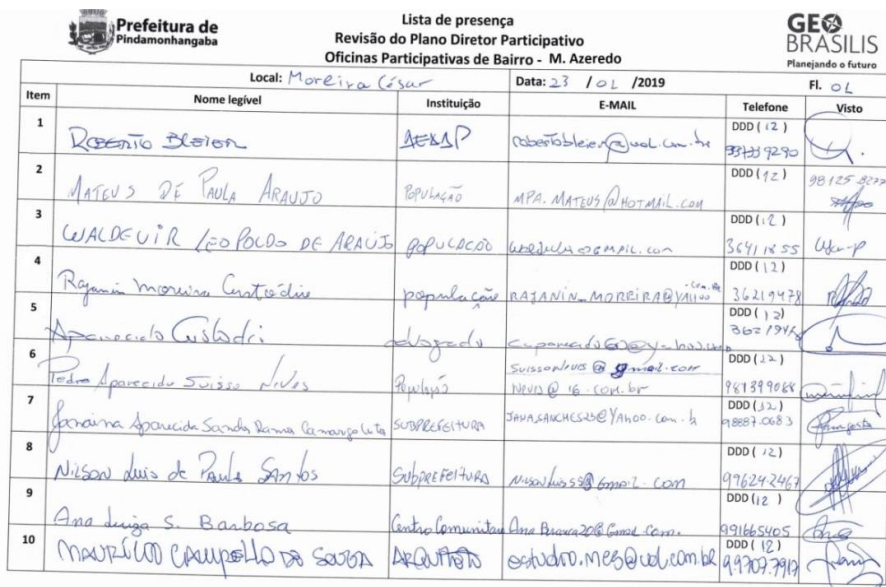 Prefeitura de
Pindamonhangaba
Lista de presença
Revisão do Plano Diretor Participativo
Oficinas Participativas de Bairro - M. Azeredo
GEO
BRASILIS
Planejando o futuro
Local: Moreira César Data: 23 / 01 /2019 Fl. 01
Item Nome legível Instituição E-MAIL Telefone Visto
1 ROBERTO BLEIER AEAAP robertobleier@uol.com.br DDD (12) 9290
2 MATEUS DE PAULA ARAUJO POPULAÇÃO MPA.MATEUS@HOTMAIL.COM DDD (12) 98125 8277
3 WALDEVIR LEOPOLDO DE ARAÚJO POPULAÇÃO DDD (12) 3641 1855
4 Rajanin Moreira Custódio população RAJANIN_MOREIRA@YAHOO.COM.BR DDD (12) 36219478
5 Aparecido Custodio advogado DDD (12)
6 Pedro Aparecido Suisso Neves População DDD (12) 981399068
7 Janaina Aparecida SUBPREFEITURA JANA.SANCHES25@YAHOO.COM.br DDD (12) 98887.0683
8 Nilson Luis de Paula Santos SUBPREFEITURA DDD (12) 99624-2467
9 Ana Luiza S. Barbosa Centro Comunitau DDD (12) 991665405
10 MAURÍLIO CAMPELLO DE SOUZA ARQUITETO estudio.mcs@uol.com.br DDD (12) 99707.7917